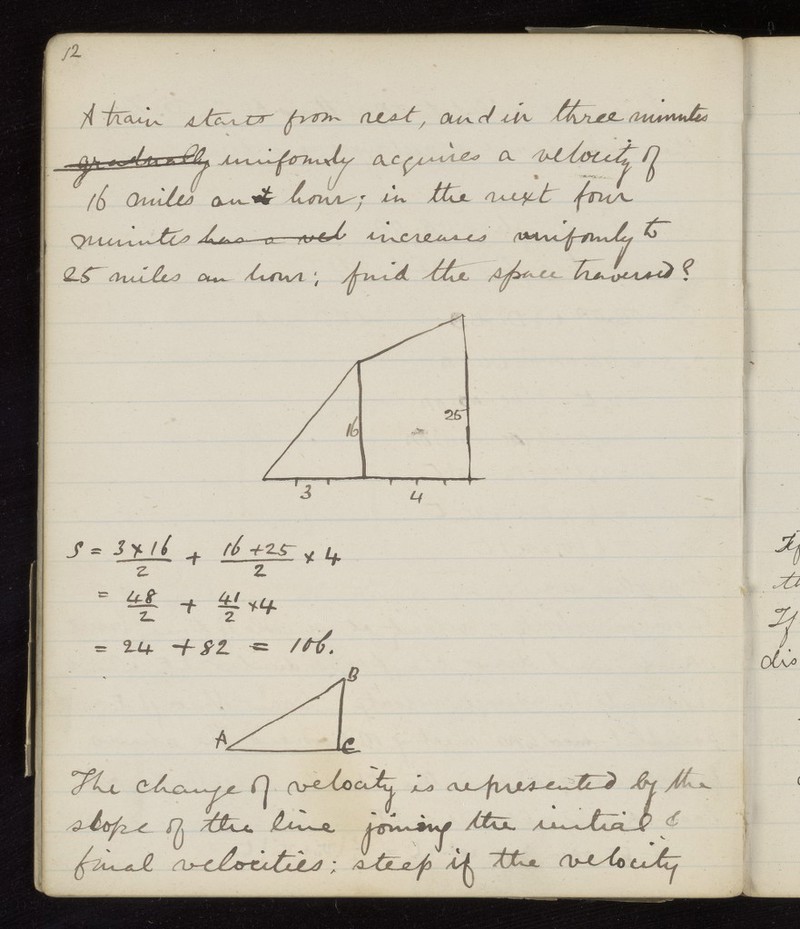 12
A train starts from rest, and in three minutes
gradually uniformly acquires a velocity of
16 miles an hour; in the next four
minutes has a vel increases uniformly to
25 miles an hour; find the space traversed?
16
25
3
4
S = 3 × 16 / 2 + 16 + 25 / 2 × 4
= 48 / 2 + 41 / 2 × 4
= 24 + 82 = 106.
B
A
C
The change of velocity is represented by the
slope of the line joining the initial &
final velocities; steep if the velocity
If
dis